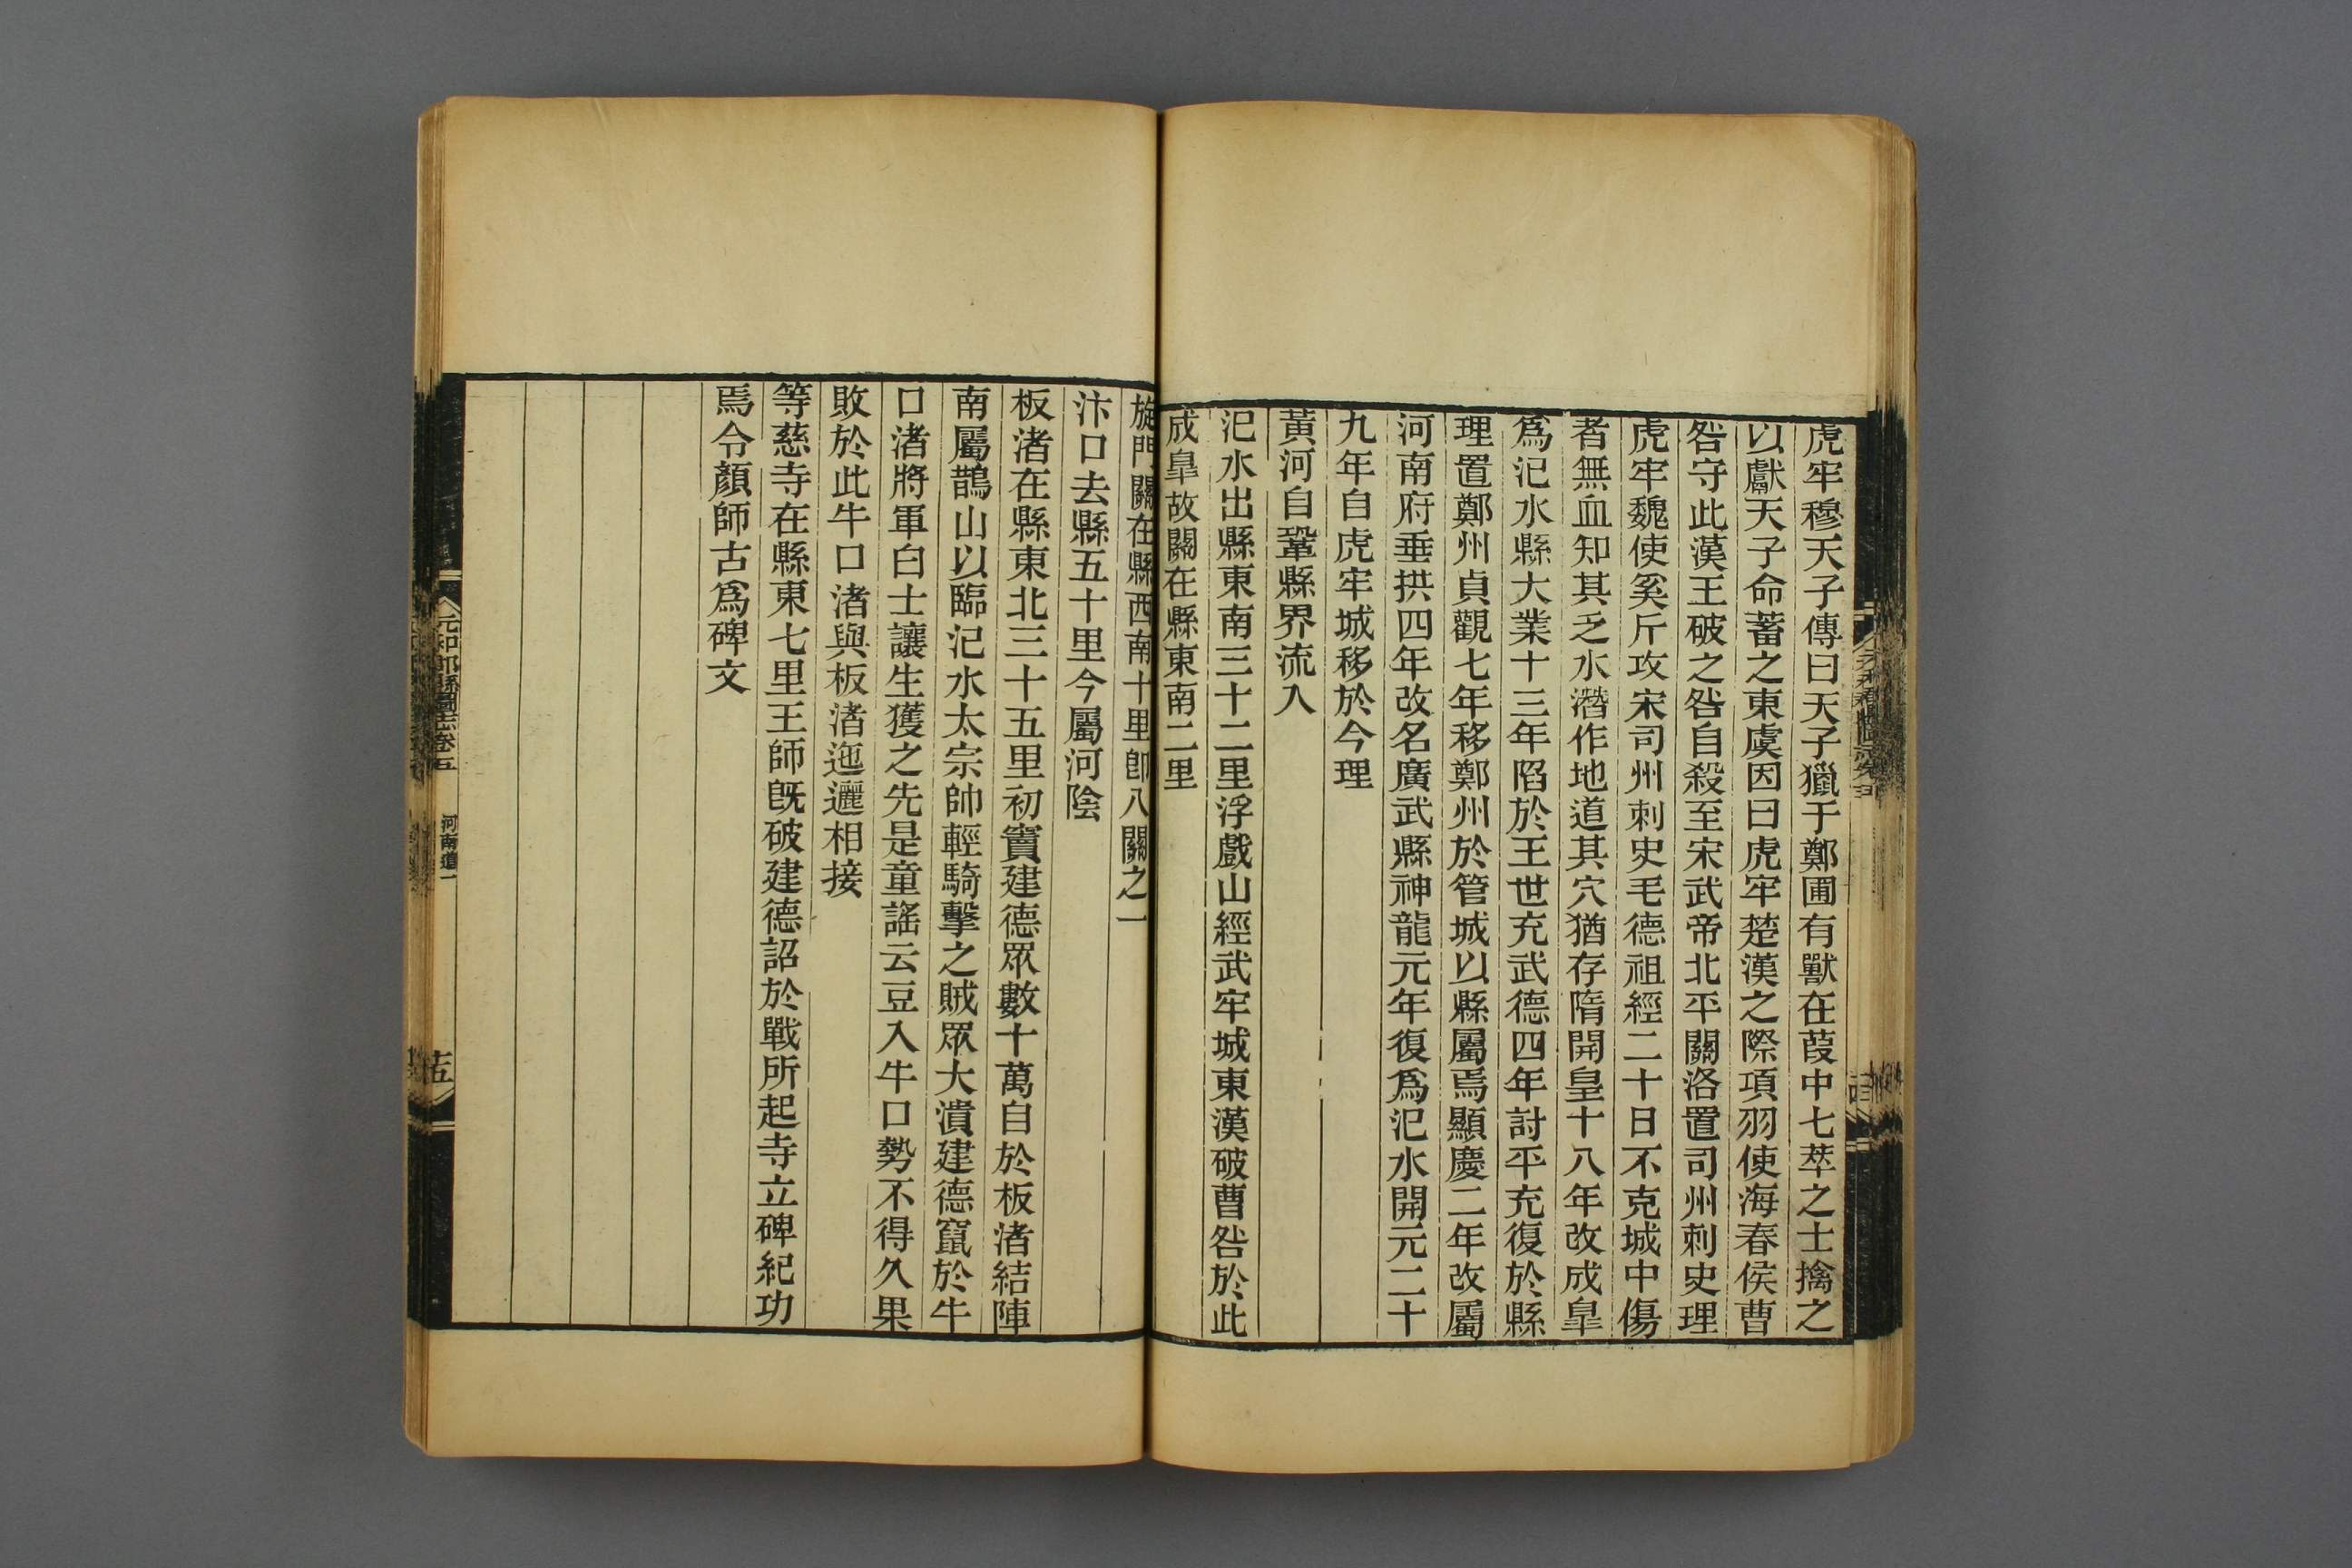 虎牢穆天子傳曰天子獵于鄭圃有獸在葭中七萃之士擒之
以獻天子命蓄之東虞因曰虎牢楚漢之際項羽使海春侯曹
咎守此漢王破之咎自殺至宋武帝北平關洛置司州刺史理
虎牢魏使奚斤攻宋司州刺史毛德祖經二十日不克城中傷
者無血知其乏水潛作地道其穴猶存隋開皇十八年改成皐
爲汜水縣大業十三年陷於王世充武德四年討平充復於縣
理置鄭州貞觀七年移鄭州於管城以縣屬焉顯慶二年改屬
河南府垂拱四年改名廣武縣神龍元年復爲汜水開元二十
九年自虎牢城移於今理
黃河自鞏縣界流入
汜水出縣東南三十二里浮戲山經武牢城東漢破曹咎於此
成皐故關在縣東南二里
旋門關在縣西南十里卽八關之一
汴口去縣五十里今屬河陰
板渚在縣東北三十五里初竇建德眾數十萬自於板渚結陣
南屬鵲山以臨汜水太宗帥輕騎擊之賊眾大潰建德竄於牛
口渚將軍白士讓生獲之先是童謠云豆入牛口勢不得久果
敗於此牛口渚與板渚迤邐相接
等慈寺在縣東七里王師旣破建德詔於戰所起寺立碑紀功
焉令顏師古爲碑文
元和郡縣圖志卷五
河南道一